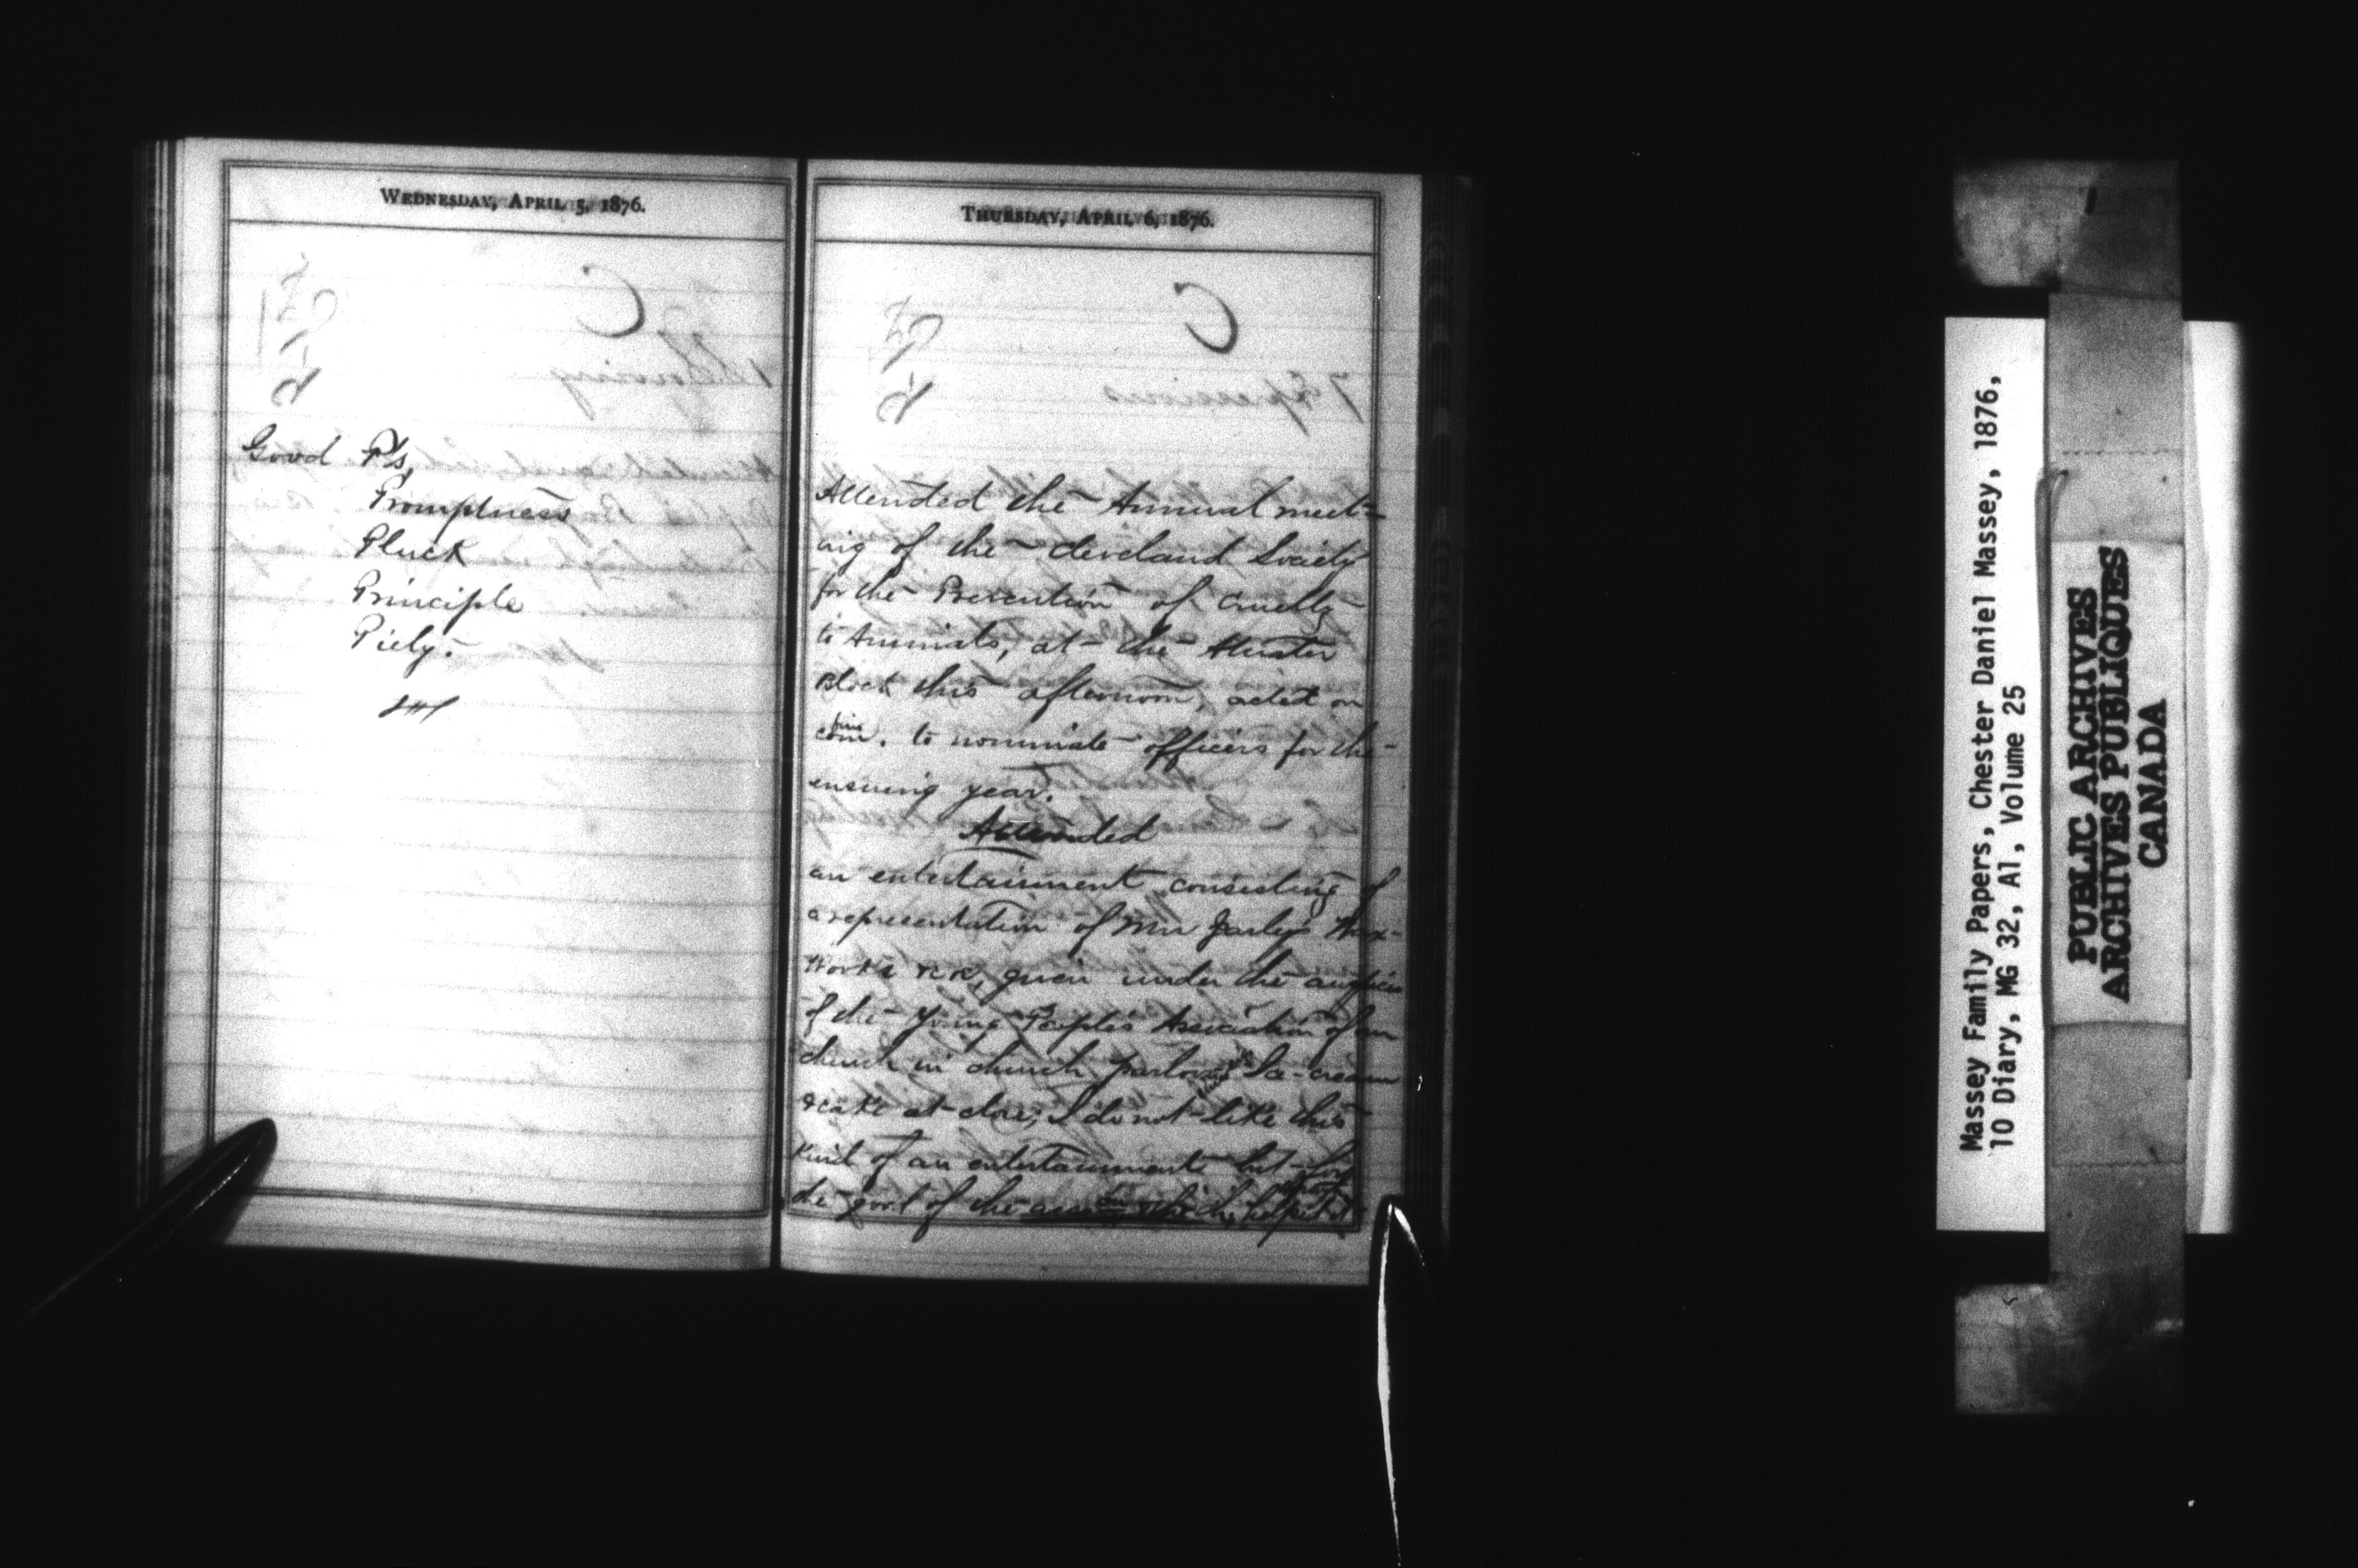 WEDNESDAY, APRIL 5, 1876.
Good P's,
Promptness
Pluck
Principle
Piety.
THURSDAY, APRIL 6, 1876.
Attended the Annual meet-
ing of the Cleveland Society
for the Prevention of Cruelty
to Animals, at the Atwater
Block this afternoon, acted on
com. to nominate officers for the
ensuing year.
Attended
an entertainment consisting of
a representation of Mrs Jarley's Wax-
works &c &c, given under the auspices
of the Young People's Association of our
church in church parlors. Ice-cream
& cake at close, I do not like this
kind of an entertainment but for
the good of the
Massey Family Papers, Chester Daniel Massey, 1876,
10 Diary, MG 32, A1, Volume 25
PUBLIC ARCHIVES
ARCHIVES PUBLIQUES
CANADA